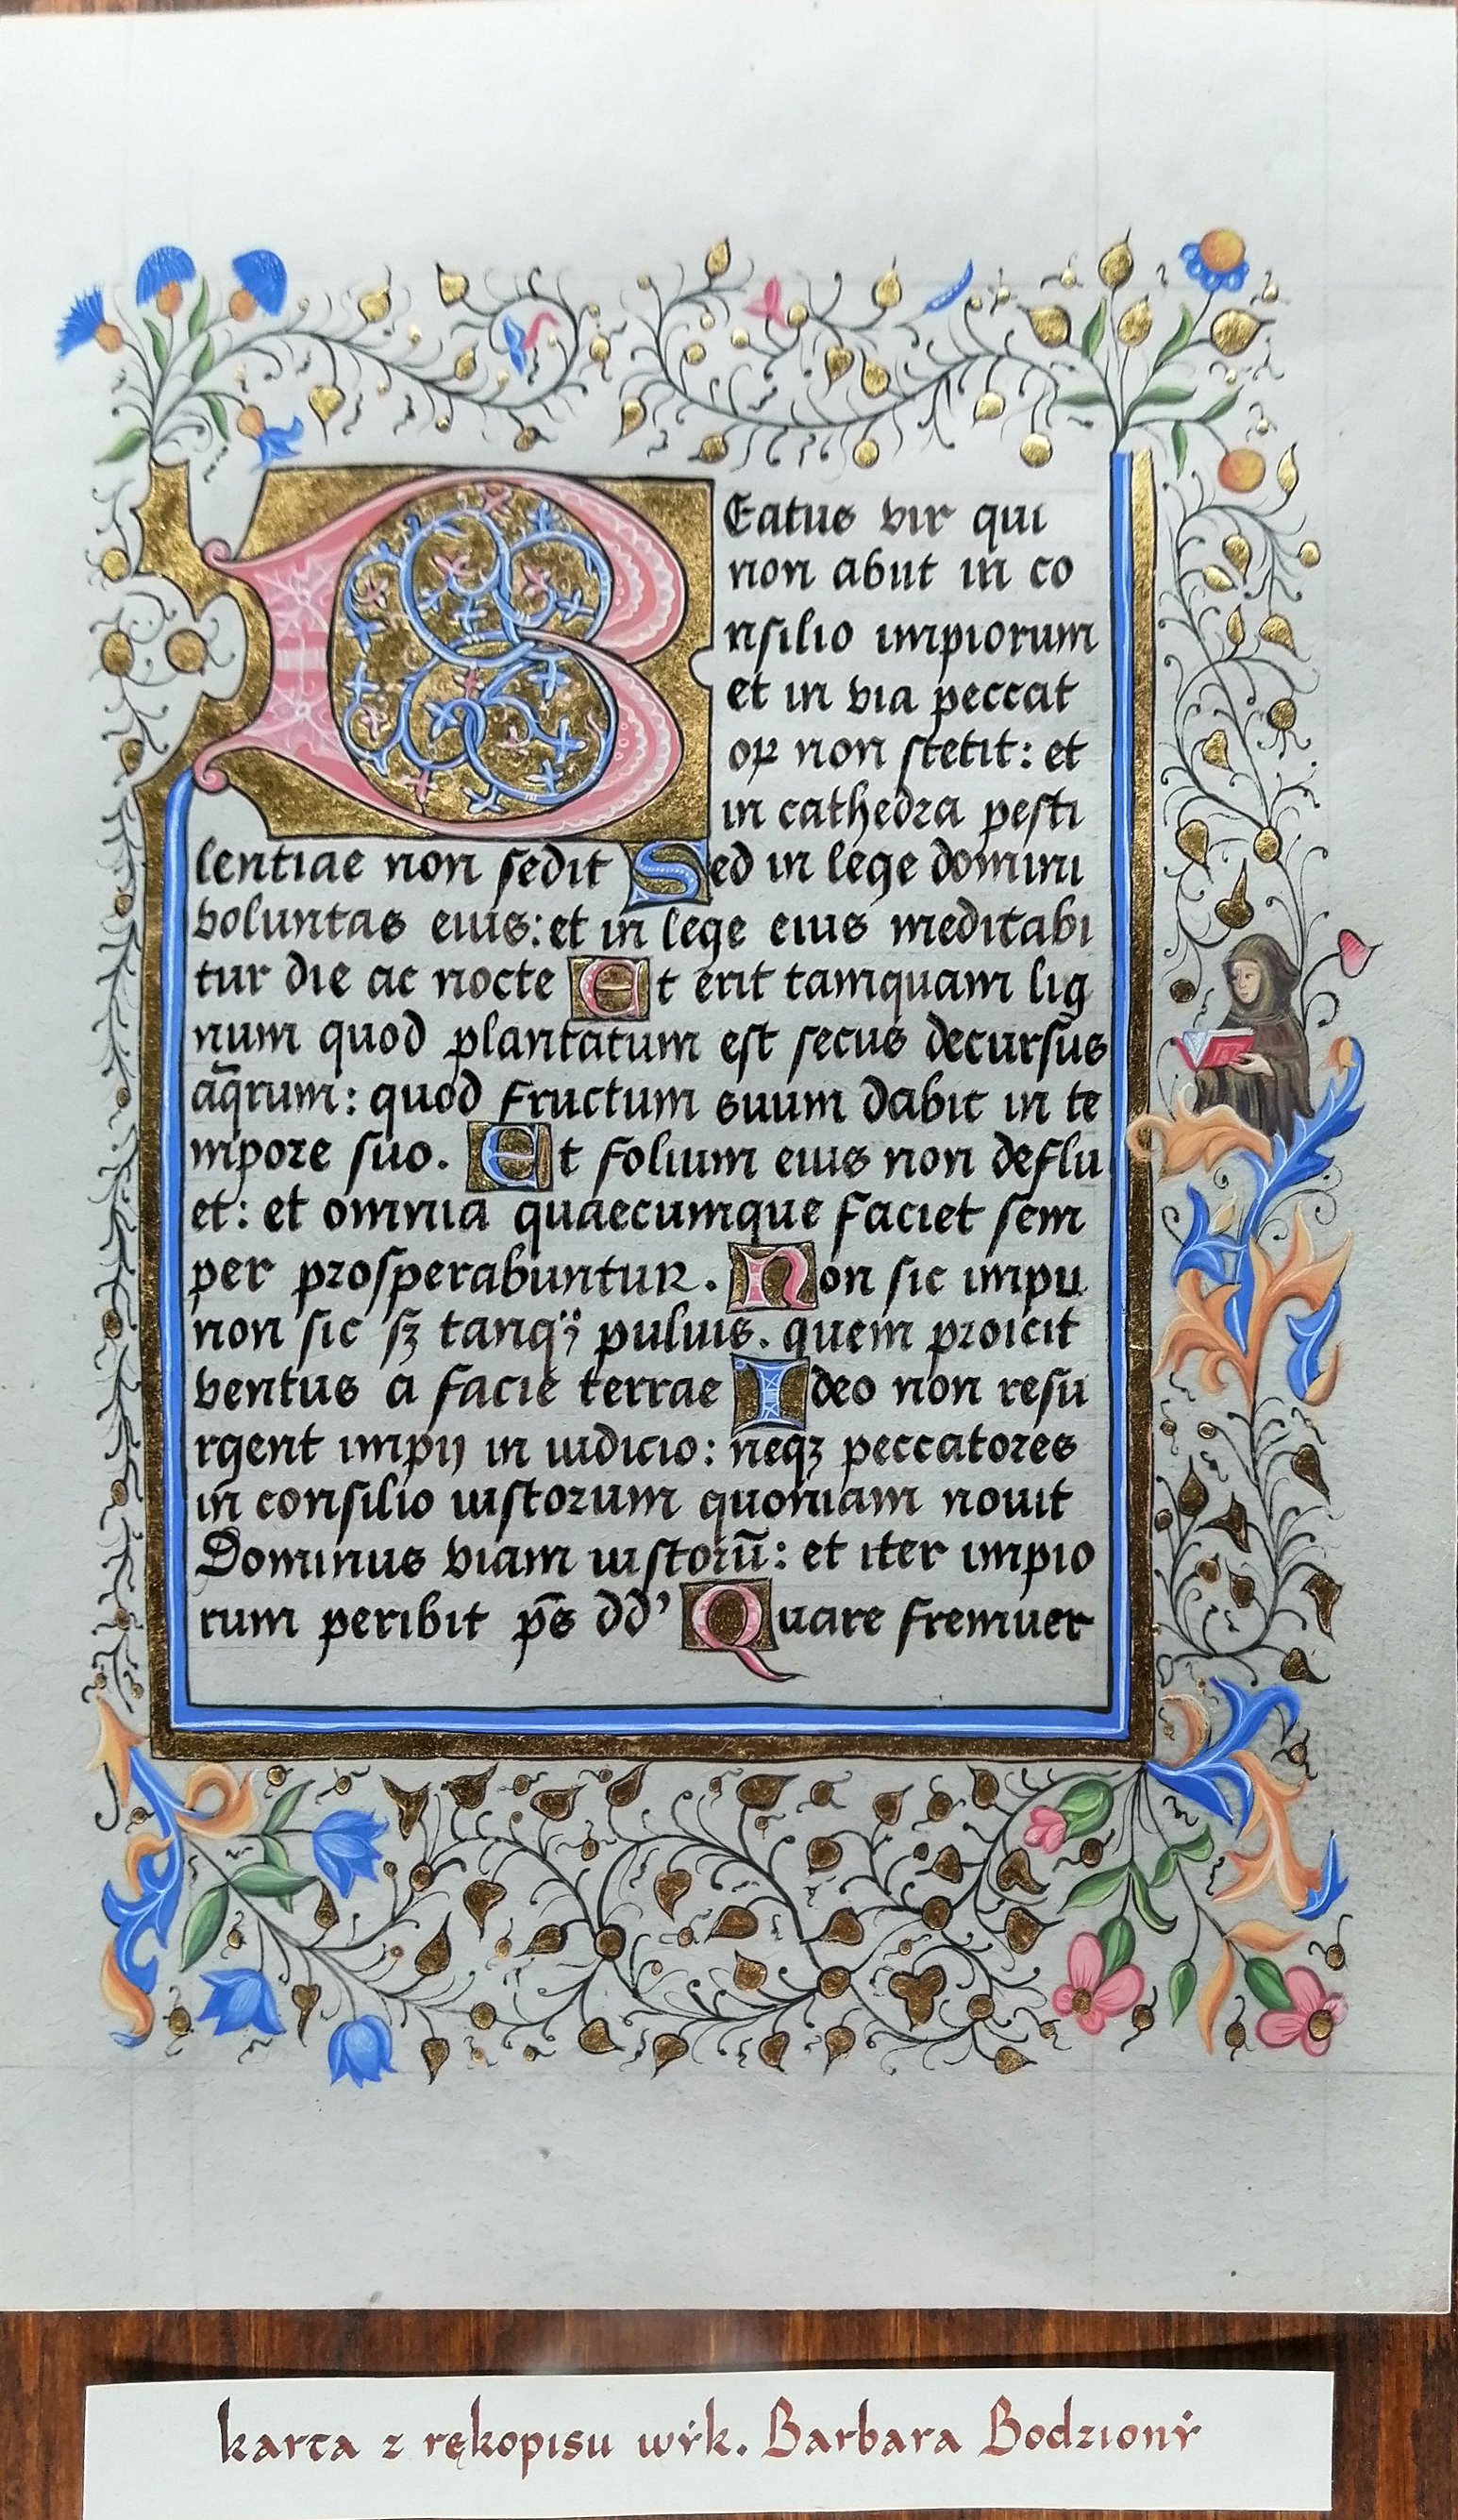 BEatus vir qui
non abut in co
nsilio impiorum
et in via peccat
oꝝ non stetit: et
in cathedra pesti
lentiae non sedit Sed in lege domini
voluntas eius: et in lege eius meditabi
tur die ac nocte Et erit tamquam lig
num quod plantatum est secus decursus
aq̄rum: quod fructum suum dabit in te
mpore suo. Et folium eius non deflu
et: et omnia quaecumque faciet sem
per prosperabuntur. Non sic impii
non sic sꝫ tanq̈; puluis. quem proicit
ventus a facie terrae Ideo non resu
rgent impij in iudicio: neqꝫ peccatores
in consilio iustorum quoniam novit
Dominus viam iustorū: et iter impio
rum peribit p̄s dd' Quare fremuer
karta z rękopisu wyk. Barbara Bodziony